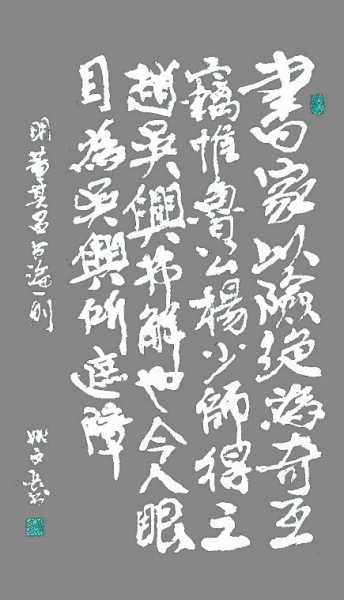 書家以險絕為奇
惟魯公楊少師得之
趙吳興弗解也今人眼
目為吳興所遮障
明董其昌書論一則